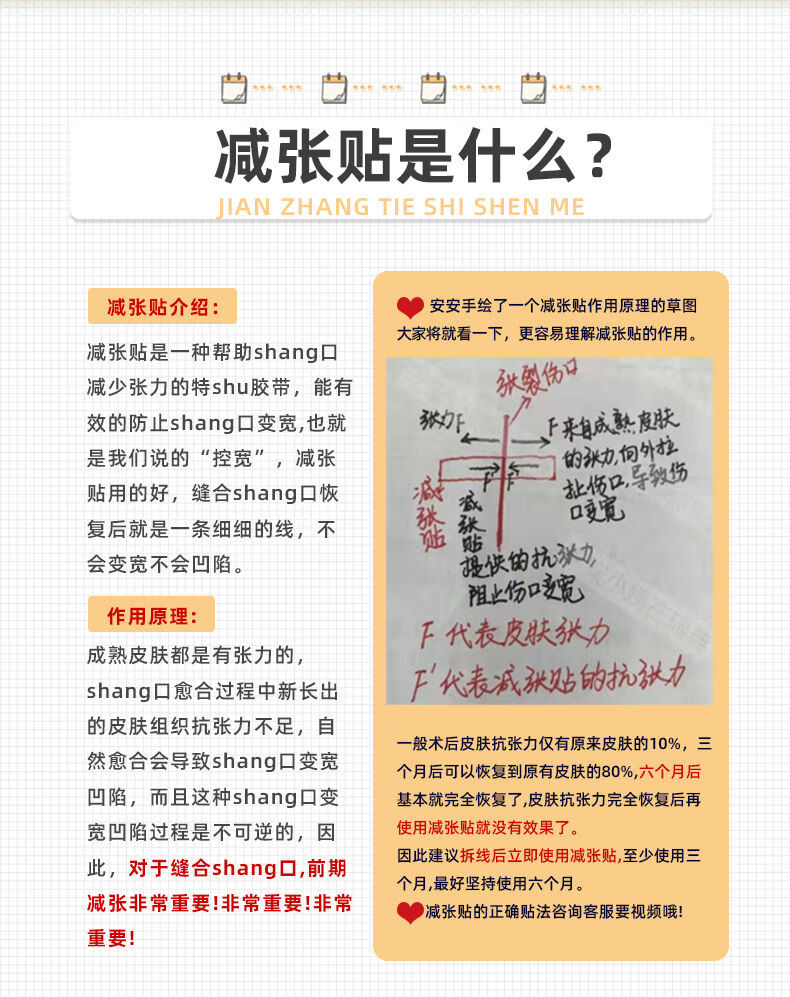 减张贴是什么？
JIAN ZHANG TIE SHI SHEN ME
减张贴介绍：
减张贴是一种帮助shang口
减少张力的特shu胶带，能有
效的防止shang口变宽,也就
是我们说的“控宽”，减张
贴用的好，缝合shang口恢
复后就是一条细细的线，不
会变宽不会凹陷。
作用原理:
成熟皮肤都是有张力的，
shang口愈合过程中新长出
的皮肤组织抗张力不足，自
然愈合会导致shang口变宽
凹陷，而且这种shang口变
宽凹陷过程是不可逆的，因
此，对于缝合shang口,前期
减张非常重要!非常重要!非常
重要!
安安手绘了一个减张贴作用原理的草图
大家将就看一下，更容易理解减张贴的作用。
张裂伤口
张力F
F来自成熟皮肤
的张力,向外拉
扯伤口,导致伤
口变宽
F' F'
减张贴
减张贴
提供的抗张力,
阻止伤口变宽
F 代表皮肤张力
F'代表减张贴的抗张力
一般术后皮肤抗张力仅有原来皮肤的10%，三
个月后可以恢复到原有皮肤的80%,六个月后
基本就完全恢复了,皮肤抗张力完全恢复后再
使用减张贴就没有效果了。
因此建议拆线后立即使用减张贴,至少使用三
个月,最好坚持使用六个月。
减张贴的正确贴法咨询客服要视频哦!